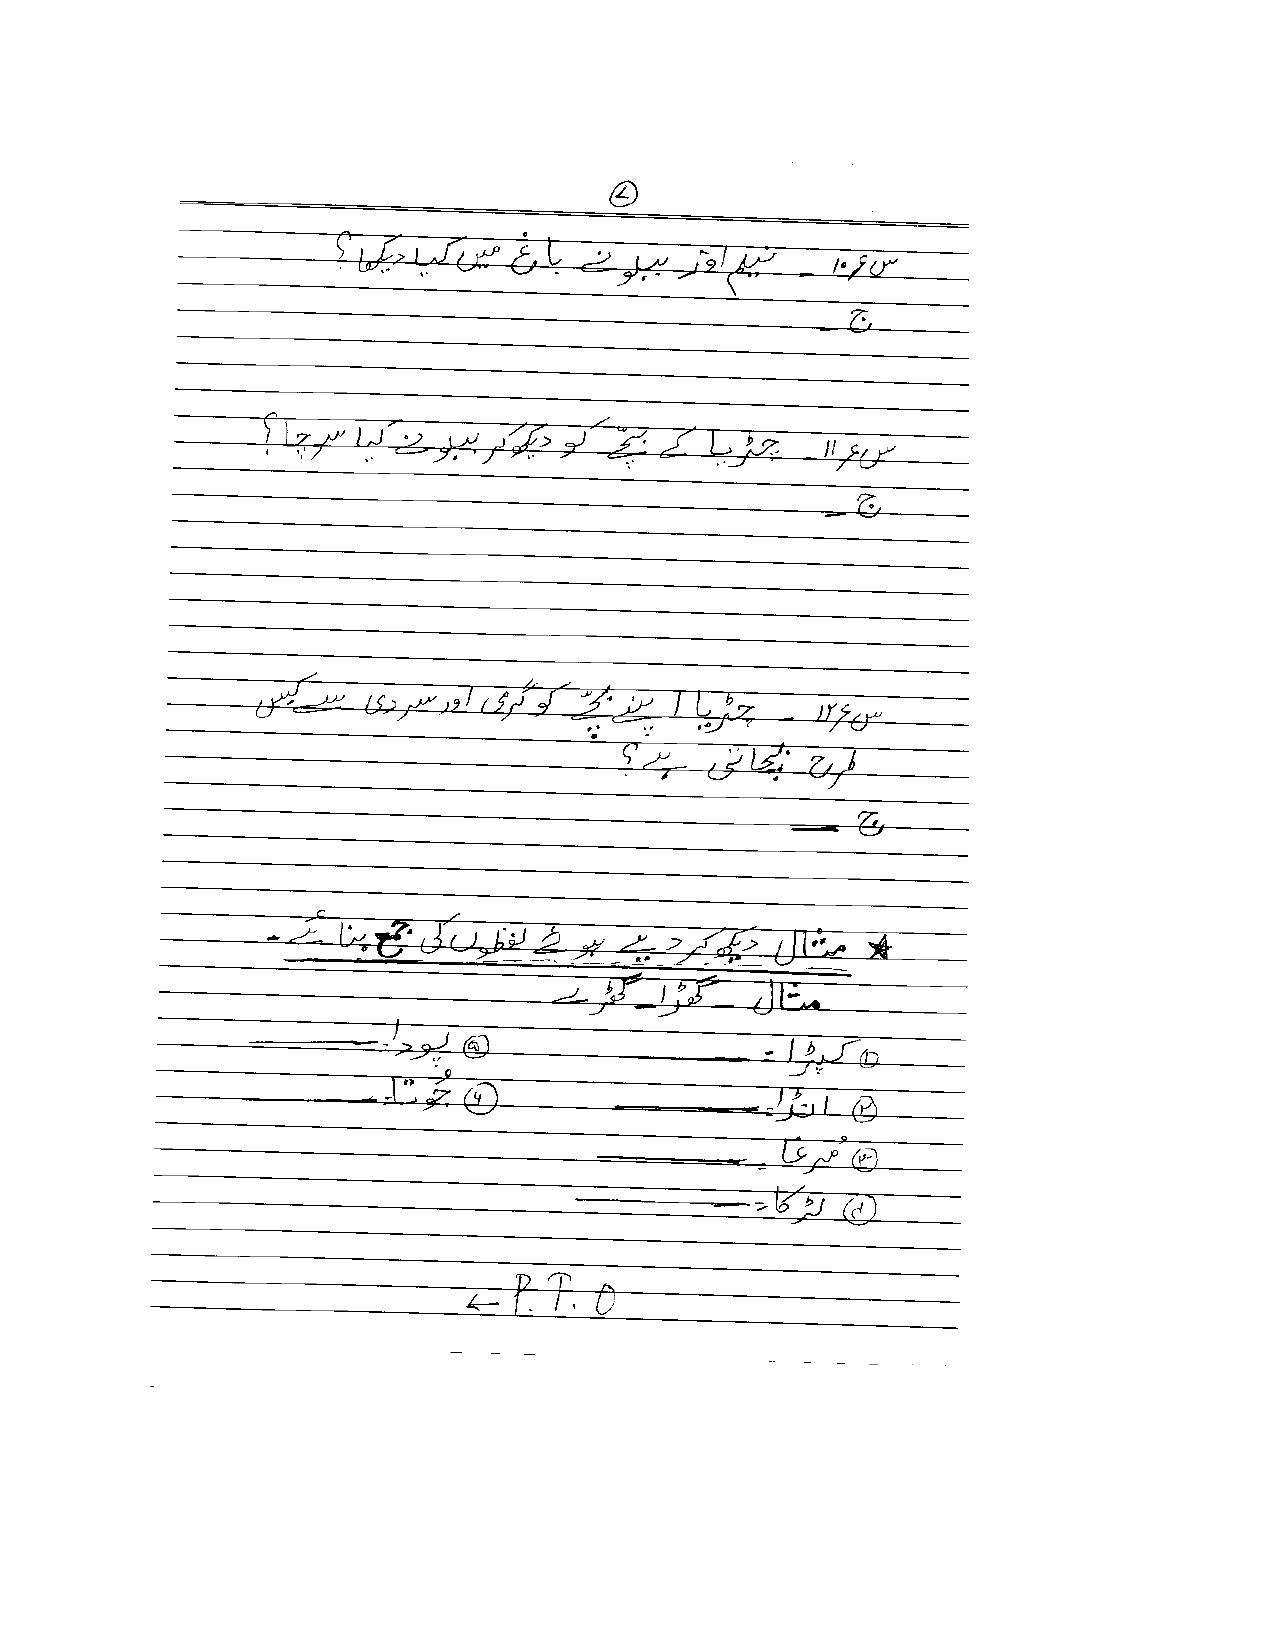 ۷
س ۱۰۶۔ نیلم اور ببلو نے باغ میں کیا دیکھا؟
ج ۔
س ۱۱۶۔ چڑیا کے بچّے کو دیکھ کر ببلو نے کیا سوچا؟
ج ۔
س ۱۲۶ ۔ چڑیا اپنے بچّے کو گرمی اور سردی سے کیس
طرح بچاتی ہے؟
ج ۔
★ مثال دیکھ کر دیے ہوئے لفظوں کی جمع بنائے ۔
مثال ۔ گھڑا ۔ گھڑے
۱ کپڑا ۔ ۵ پودا ۔
۲ انڈا ۔ ۶ جُوتا ۔
۳ مُرغا ۔
۴ لڑکا ۔
P.T.O ←